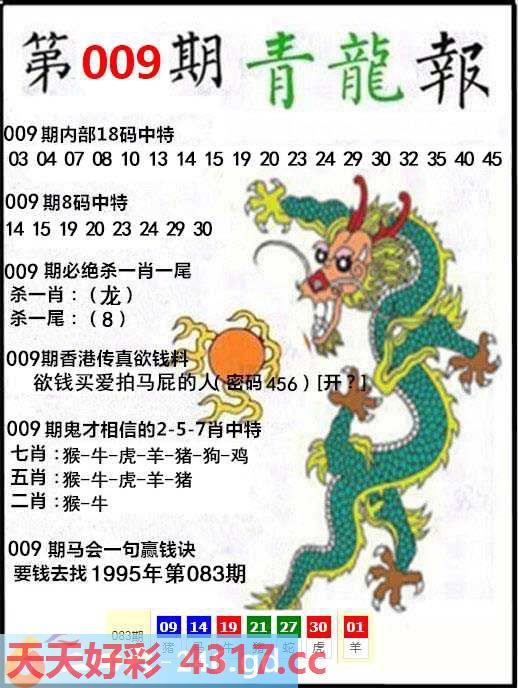 第009期青龍報
009期内部18码中特
03 04 07 08 10 13 14 15 19 20 23 24 29 30 32 35 40 45
009期8码中特
14 15 19 20 23 24 29 30
009 期必绝杀一肖一尾
杀一肖：（龙）
杀一尾：（8）
009期香港传真欲钱料
欲钱买爱拍马屁的人（密码456）[开？]
009期鬼才相信的2-5-7肖中特
七肖：猴-牛-虎-羊-猪-狗-鸡
五肖：猴-牛-虎-羊-猪
二肖：猴-牛
009 期马会一句赢钱诀
要钱去找1995年第083期
083期 09 14 19 21 27 30 01
猪 牛 猪 蛇 虎 羊
天天好彩 4317.cc